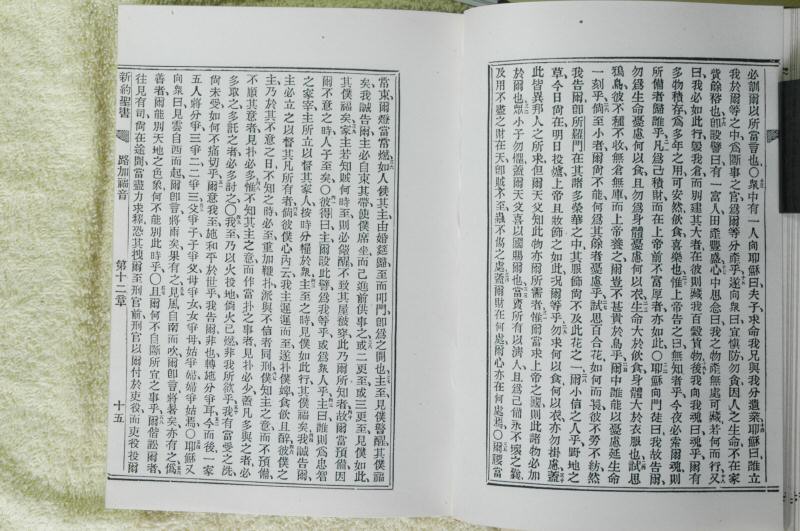 必訓爾以所當言也○衆中有一人向耶穌曰夫子求命我兄與我分遺業耶穌曰誰立
我於爾等之中爲斷事之官爲爾等分產乎遂向衆曰宜愼防勿貪因人之生命不在家
貲餘裕也卽設譬曰有一富人田產豐盛心中思念曰我之物產無處可藏若何而行又
曰我必如此行毀我倉而別建其大者在彼則藏我百穀貨物後我向我魂曰魂乎爾有
多物積存爲多年之用可安然飲食喜樂也惟上帝告之曰無知者乎今夜必索爾魂則
所備者歸誰乎凡爲己積財而在上帝前不富厚者亦如此○耶穌向門徒曰我故告爾
勿爲生命憂慮何以食且勿爲身體憂慮何以衣生命大於飲食身體大於衣服也試思
鴉鳥彼不種不收無倉無庫而上帝養之爾豈不甚貴於鳥乎爾中誰能以憂慮延生命
一刻乎倘至小者爾尙不能何爲其餘者憂慮乎試思百合花如何而長彼不勞不紡然
我告爾卽所羅門在其諸多榮華之中其服飾尙不及此花之一爾小信之人乎野地之
草今日尙在明日投爐上帝且妝飾之如此况爾等乎勿求何以食何以飲亦勿掛慮蓋
此皆異邦人之所求但爾天父知此物亦爾所需者惟爾當求上帝之國則此諸物必加
於爾也小子勿懼蓋爾天父喜以國賜爾也當賣所有以濟人且爲己備永不壞之囊
及用不盡之財在天卽賊不至蟲不傷之處蓋爾財在何處爾心亦在何處焉○爾腰當
常束爾燈當常燃如人俟其主由婚筵歸至而叩門卽爲之開也主至見僕警醒其僕福
矣我誠告爾主必自束其帶使僕席坐而己進前供事之或二更至或三更至見僕如此
其僕福矣家主若知賊何時至則必儆醒不致其屋被穿此乃爾所知者故爾當預備因
爾不意之時人子至矣○彼得曰主爾設此譬爲我等乎或爲衆人乎主曰誰則爲忠智
之家宰主所立以督其家人按時分糧於衆主至之時見僕如此行其僕福矣我誠告爾
主必立之以督其凡所有者倘彼僕心內云我主遲遲而至遂扑僕婢食飲且醉彼僕之
主乃於其不意之日不知之時必至重加鞭扑派與不信者同刑僕知主之意而不預備
不順其意者見扑必多惟不知其主之意而作當扑之事者見扑必少蓋凡多與之者必
多取之多託之者必多討之○我至乃以火投地倘火已燃非我所欲乎我有當受之洗
尙未受如何不痛切乎爾意我至施和平於世乎我告爾非也轉施分爭耳今而後一家
五人將分爭三爭二二爭三父爭子子爭父母爭女女爭母姑爭婦婦爭姑焉○耶穌又
向衆曰見雲自西而起爾卽言將雨矣果有之見風自南而吹爾卽言將暑矣亦有之僞
善者爾能別天地之色象何不能別此時乎○且爾何不自斷所宜之事乎爾偕訟爾者
往見有司尙在途間當盡力求釋恐其拽爾至刑官前刑官以爾付於吏役而吏役投爾
新約聖書 路加福音 第十二章 十五